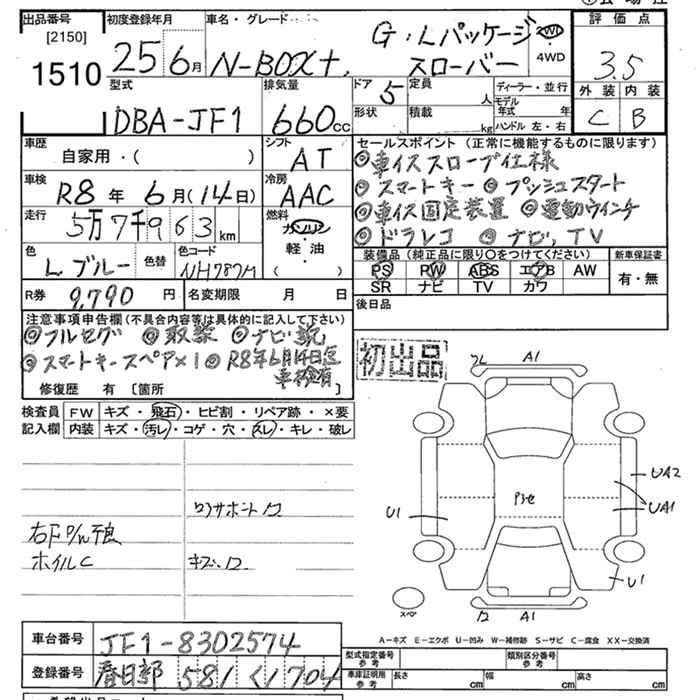 出品番号 [2150] 1510
初度登録年月 25 6月
車名・グレード N-BOX+, G・Lパッケージ スローパー
2WD 4WD
評価点 3.5
外装 C 内装 B
型式 DBA-JF1
排気量 660cc
ドア 5 定員 人
形状 積載 kg
ディーラー・並行
モデル年式 年
ハンドル 左・右
車歴 自家用・( )
シフト AT
車検 R8年 6月(14日)
冷房 AAC
走行 5万7千963km
燃料 ガソリン 軽・油 ( )
色 L.ブルー 色替 色コード NH787M
R券 9,790円 名変期限 月 日
セールスポイント(正常に機能するものに限ります)
◎車イススロープ仕様
◎スマートキー ◎プッシュスタート
◎車イス固定装置 ◎電動ウインチ
◎ドラレコ ◎ナビ,TV
装備品(純正品に限り○をつけてください) 新車保証書
PS PW ABS エアB AW 有・無
SR ナビ TV カワ
後日品
注意事項申告欄(不具合内容等は具体的に記入して下さい)
◎フルセグ ◎取説 ◎ナビ説
◎スマートキースペア×1 ◎R8年6月14日迄
車検有
修復歴 有 〔箇所
初出品
検査員記入欄 FW キズ・飛石・ヒビ割・リペア跡・×要
内装 キズ・汚レ・コゲ・穴・スレ・キレ・破レ
ホイルC
キズ、ワ
フレ A1
UA2
UA1
U1
U1
スペア
ワ A1
A-キズ E-エクボ U-凹み W-補修跡 S-サビ C-腐食 XX-交換済
車台番号 JF1-8302574
登録番号 春日部 581 く1704
型式指定番号 参考 類別区分番号 参考
車庫証明用 参考 長さ cm 幅 cm 高さ cm